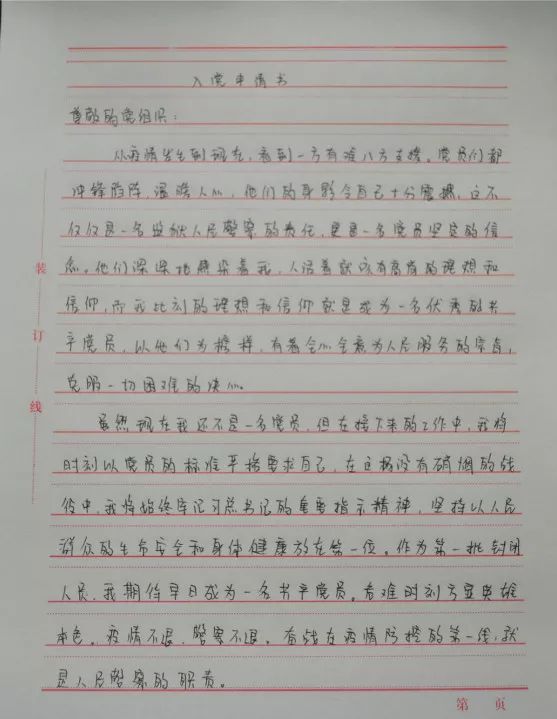 入党申请书
尊敬的党组织：
从疫情发生到现在，看到一方有难八方支援。党员们都
冲锋陷阵，温暖人心，他们的身影令自己十分震撼，这不
仅仅是一名监狱人民警察的责任，更是一名党员坚定的信
念。他们深深地感染着我，人活着就该有高尚的理想和
信仰，而我此刻的理想和信仰就是成为一名优秀的共
产党员，以他们为榜样，有着全心全意为人民服务的宗旨，
克服一切困难的决心。
虽然现在我还不是一名党员，但在接下来的工作中，我将
时刻以党员的标准严格要求自己，在这场没有硝烟的战
役中，我将始终牢记习总书记的重要指示精神，坚持以人民
群众的生命安全和身体健康放在第一位。作为第一批封闭
人员，我期待早日成为一名共产党员。危难时刻方显英雄
本色。疫情不退，警察不退。奋战在疫情防控的第一线，就
是人民警察的职责。
装
订
线
第 页